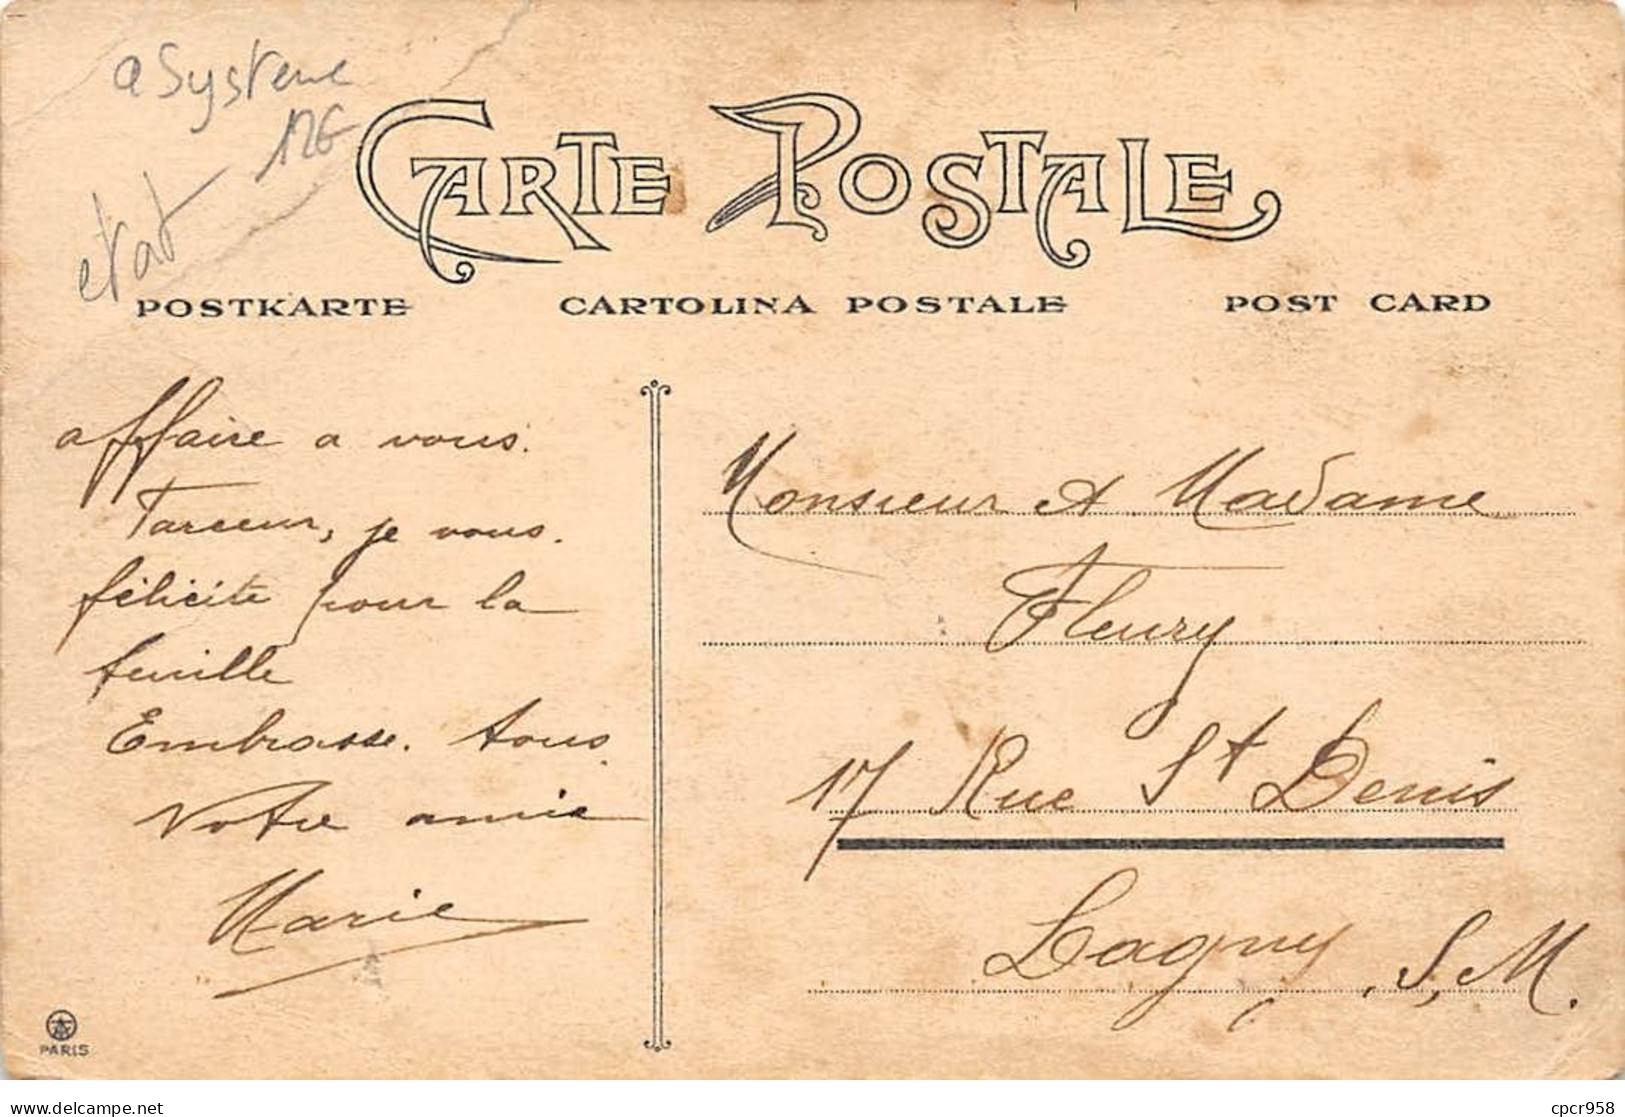 a Systeme
12€
etat
CARTE POSTALE
POSTKARTE CARTOLINA POSTALE POST CARD
affaire a vous.
Farceur, je vous.
félicite pour la
feuille
Embrasse. tous
Votre amie
Marie
Monsieur et Madame
Fleury
17 Rue St Denis
Lagny, S, M.
PARIS
delcampe.net
cpcr958